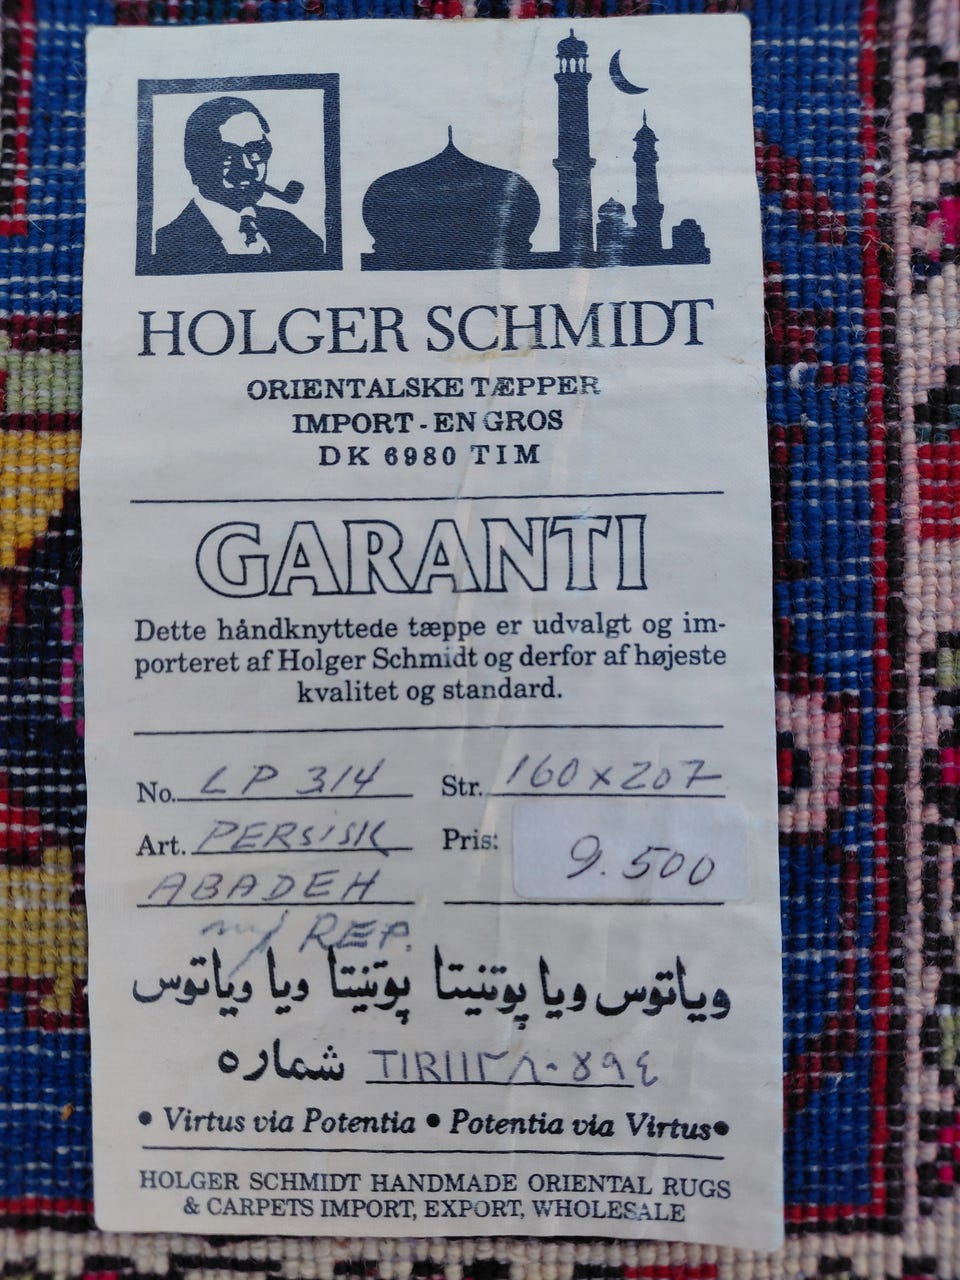 HOLGER SCHMIDT
ORIENTALSKE TÆPPER
IMPORT - EN GROS
DK 6980 TIM
GARANTI
Dette håndknyttede tæppe er udvalgt og im-
porteret af Holger Schmidt og derfor af højeste
kvalitet og standard.
No. LP 314 Str. 160 x 207
Art. PERSISK Pris: 9.500
ABADEH
m/ REP.
ویاتوس ویا پوتنیتا پوتنیتا ویا ویاتوس
شماره TIR١١٢٨٠٨٩٤
• Virtus via Potentia • Potentia via Virtus •
HOLGER SCHMIDT HANDMADE ORIENTAL RUGS
& CARPETS IMPORT, EXPORT, WHOLESALE